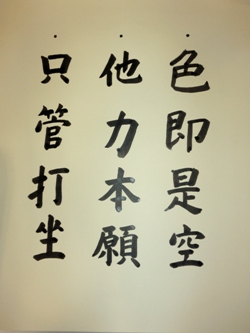 ・色即是空
・他力本願
・只管打坐